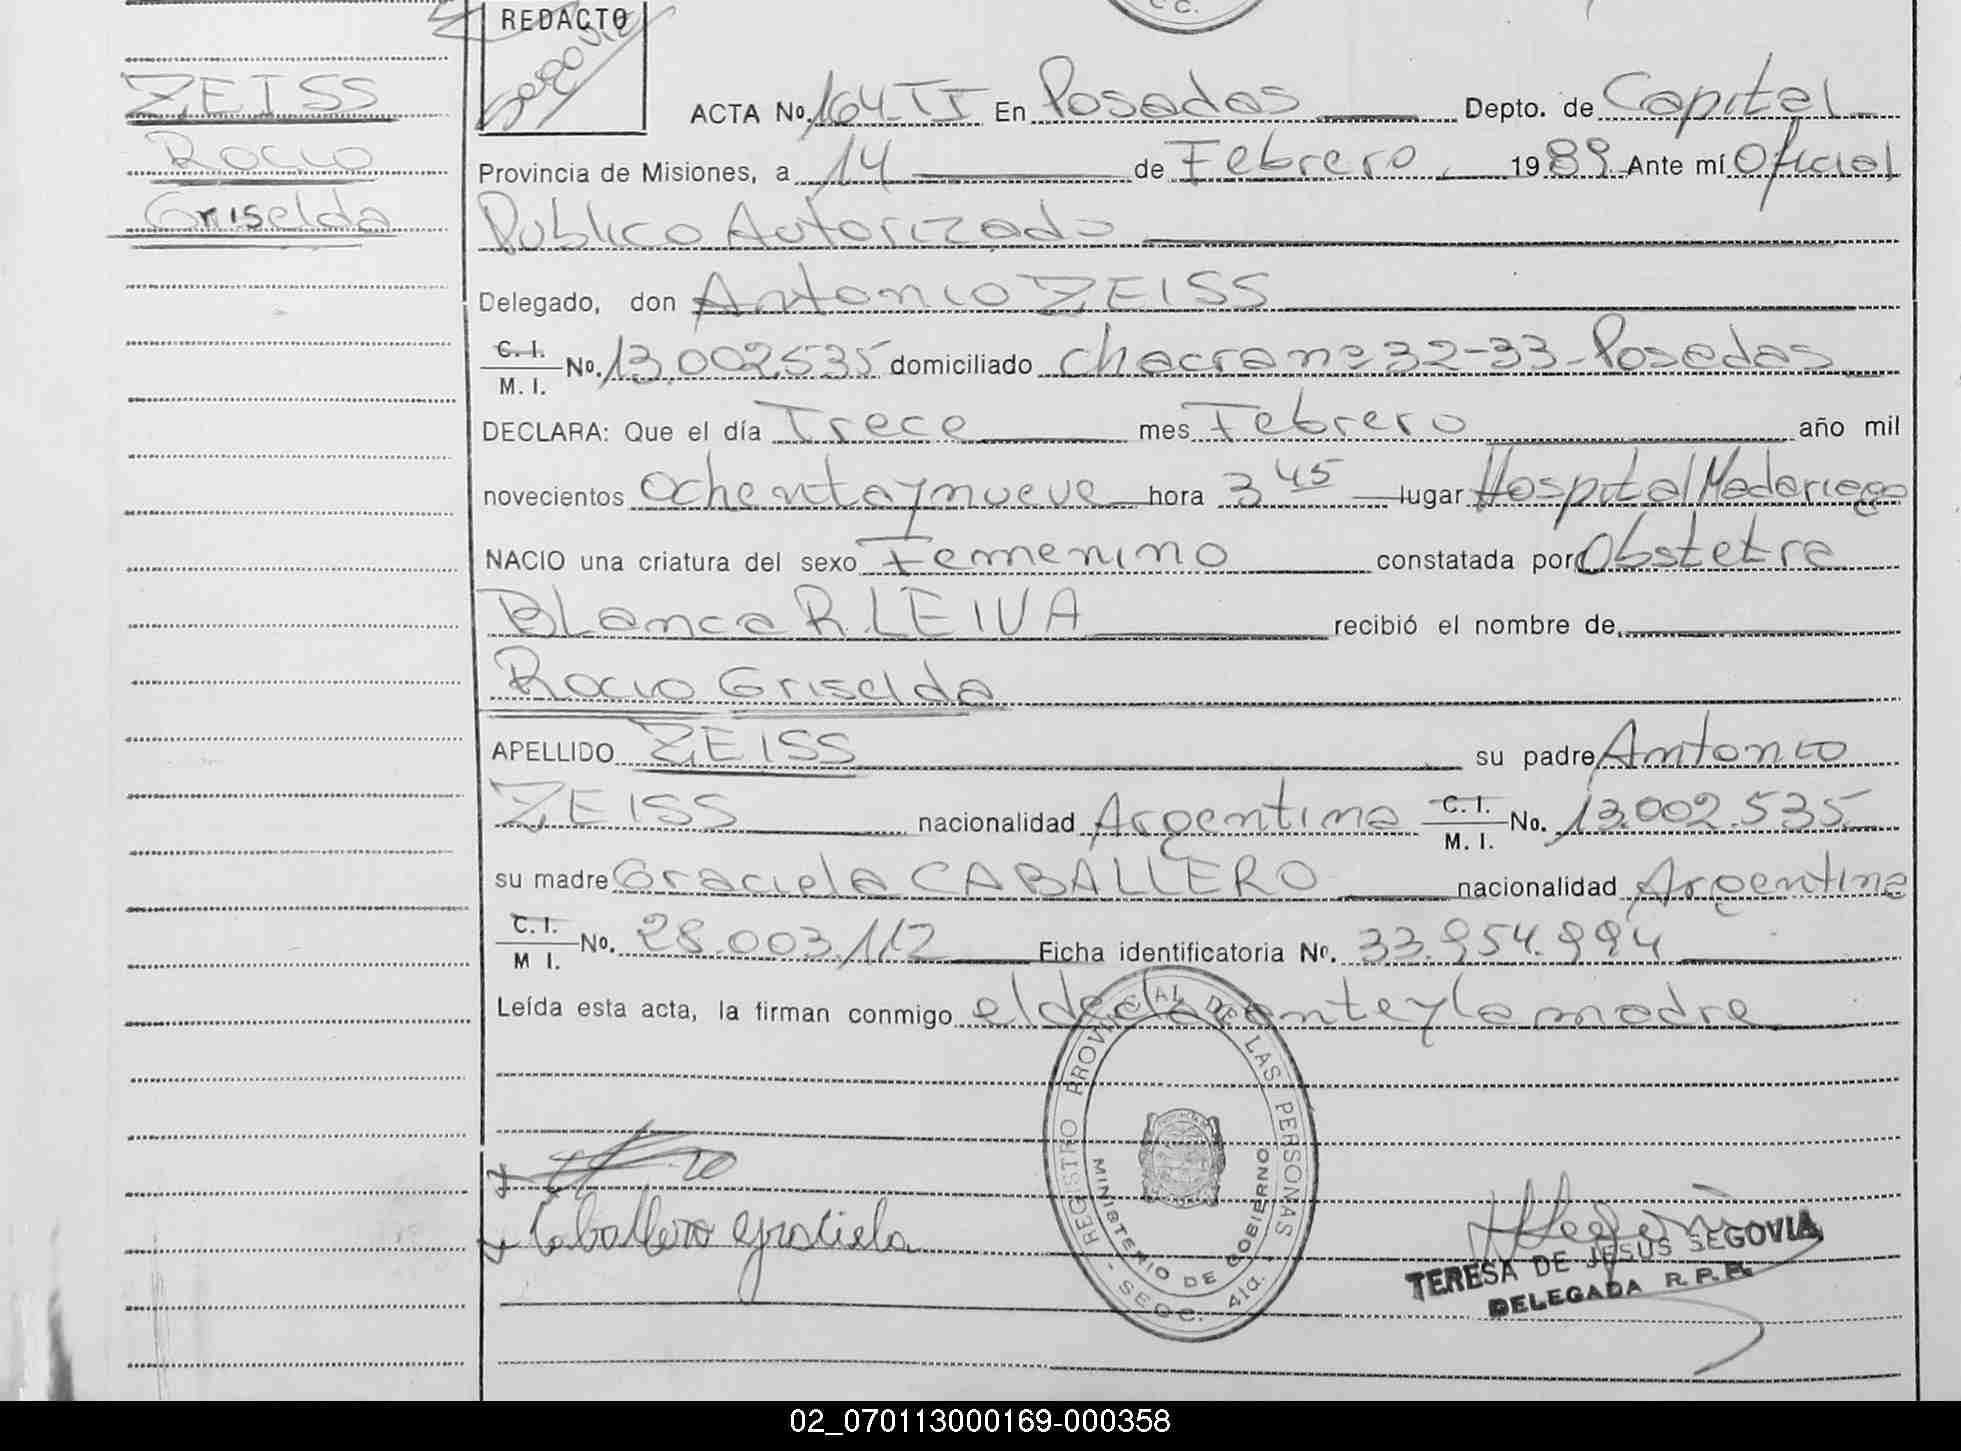 REDACTO
Segovia
C.C.
ZEISS
Rocio
Griselda
ACTA No. 164-TI En Posadas Depto. de Capital
Provincia de Misiones, a 14 de Febrero 1989. Ante mí Oficial
Publico Autorizado
Delegado, don Antonio ZEISS
C. I. M. I. No. 13.002.535 domiciliado chacra nº 32-33-Posadas
DECLARA: Que el día Trece mes Febrero año mil
novecientos ochenta y nueve hora 3 45 lugar Hospital Madariaga
NACIO una criatura del sexo Femenino constatada por Obstetra
Blanca R. LEIVA recibió el nombre de
Rocio Griselda
APELLIDO ZEISS su padre Antonio
ZEISS nacionalidad Argentina C. I. M. I. No. 13.002.535
su madre Graciela CABALLERO nacionalidad Argentina
C. I. M I. No. 28.003.112 Ficha identificatoria No. 33.954.994
Leída esta acta, la firman conmigo el declarante y la madre
REGISTRO PROVINCIAL DE LAS PERSONAS
MINISTERIO DE GOBIERNO
- SECC. 4ta. -
Caballero Graciela
TERESA DE JESUS SEGOVIA
DELEGADA R. P. P.
02_070113000169-000358